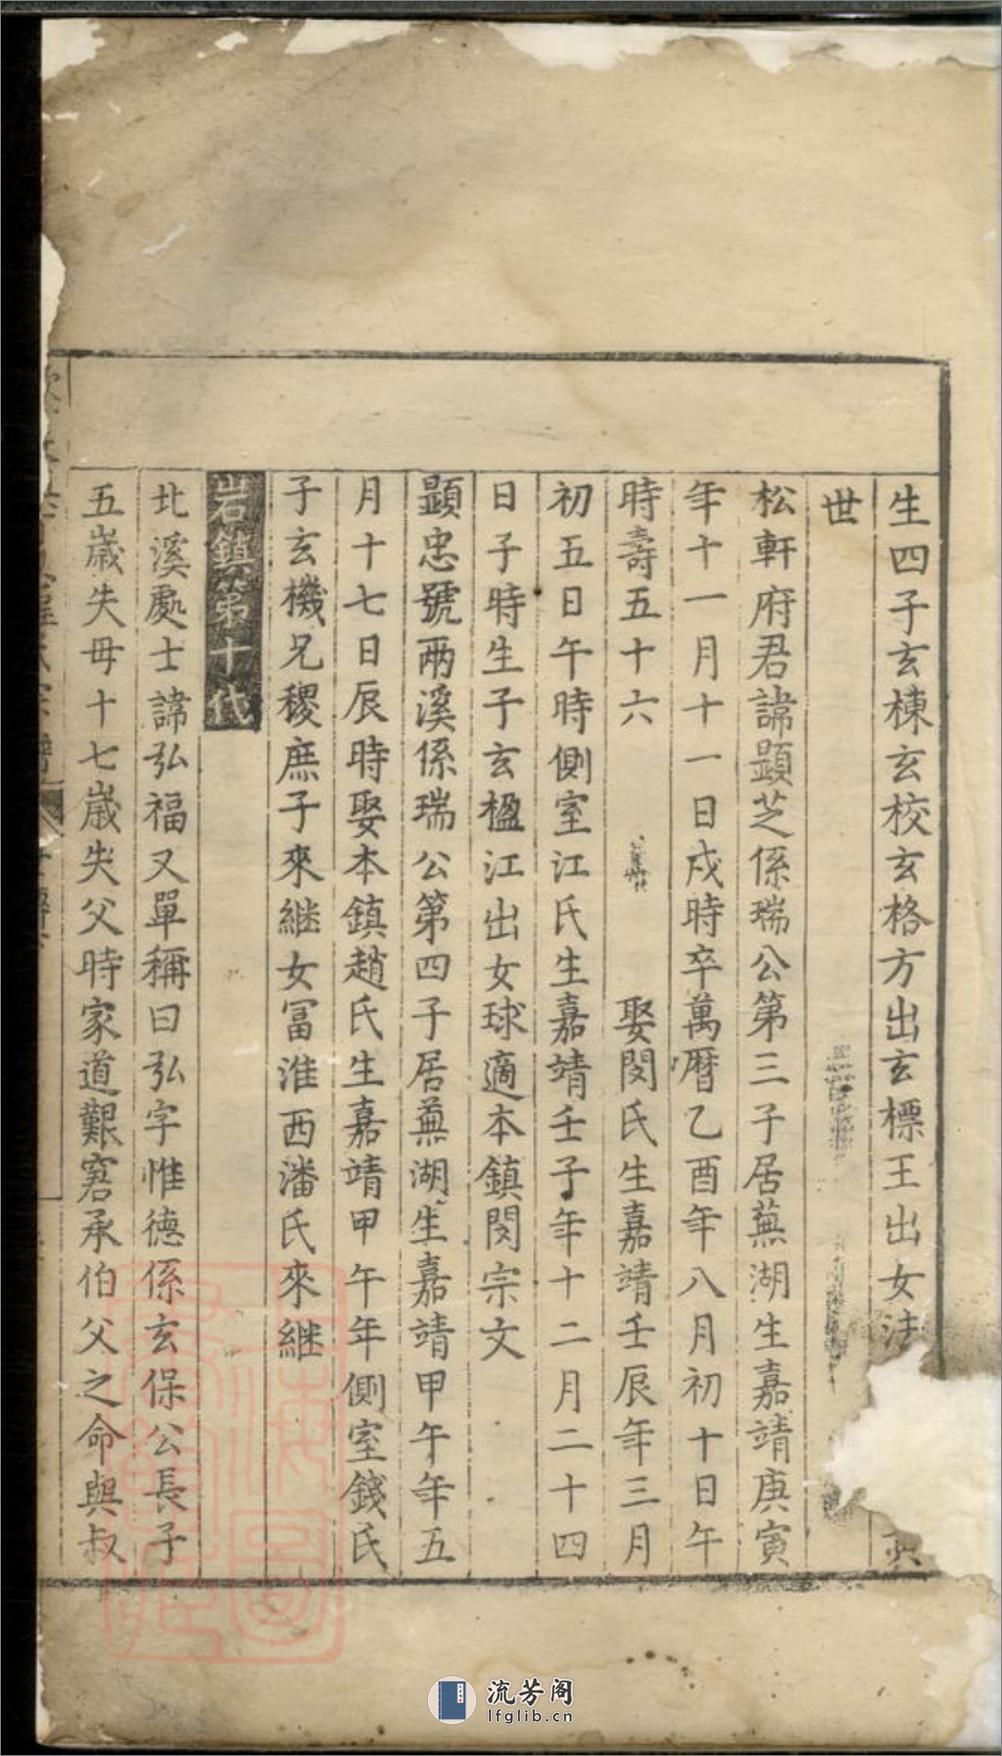 生四子玄棟玄校玄格方出玄標王出女法
世
松軒府君諱顕芝係瑞公第三子居蕪湖生嘉靖庚寅
年十一月十一日戌時卒萬曆乙酉年八月初十日午
時壽五十六 娶閔氏生嘉靖壬辰年三月
初五日午時側室江氏生嘉靖壬子年十二月二十四
日子時生子玄楹江出女球適本鎮閔宗文
顕忠號兩溪係瑞公第四子居蕪湖生嘉靖甲午年五
月十七日辰時娶本鎮趙氏生嘉靖甲午年側室錢氏
子玄機兄稷庶子來継女冨淮西潘氏來継
岩鎮第十代
北溪處士諱弘福又單稱曰弘字惟德係玄保公長子
五歲失母十七歲失父時家道艱窘承伯父之命與叔
流芳阁
lfglib.cn